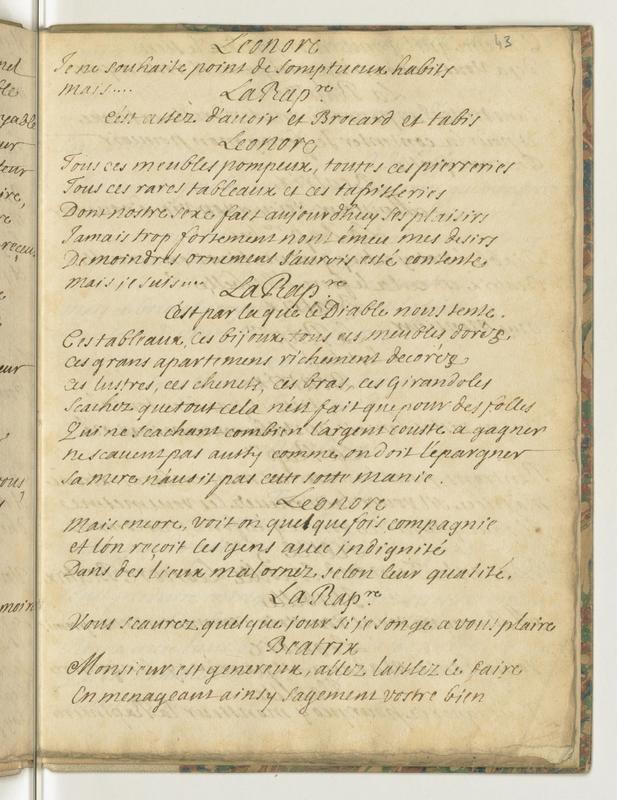 43
Leonore
Je ne souhaite point de somptueux habits
mais....
La Rap.re
C'est assez d'avoir et Brocard et tabis
Leonore
Tous ces meubles pompeux, toutes ces pierreries
Tous ces rares tableaux et ces tapisseries
Dont nostre sexe fait aujourdhuy ses plaisirs
Jamais trop fortement n'ont émeu mes desirs
De moindres ornemens j'aurois esté contente
mais je suis....
La Rap.re
C'est par la que le Diable nous tente.
Ces tableaux, ces bijoux, tous ces meubles dorez,
ces grans apartemens richement decorez,
ces lustres, ces chenets, ces bras, ces Girandoles
Scachez que tout cela n'est fait que pour des folles
Qui ne scachant combien l'argent couste a gagner
ne scavent pas aussy comme on doit l'épargner
Sa mere n'avoit pas cette sotte manie.
Leonore
Mais encore, voit on quelquefois compagnie
et l'on reçoit les gens avec indignité
Dans des lieux mal ornez selon leur qualité.
La Rap.re
Vous scaurez quelque jour si je songe a vous plaire
Beatrix
Monsieur est genereux, allez laissez le faire
En menageant ainsy sagement vostre bien